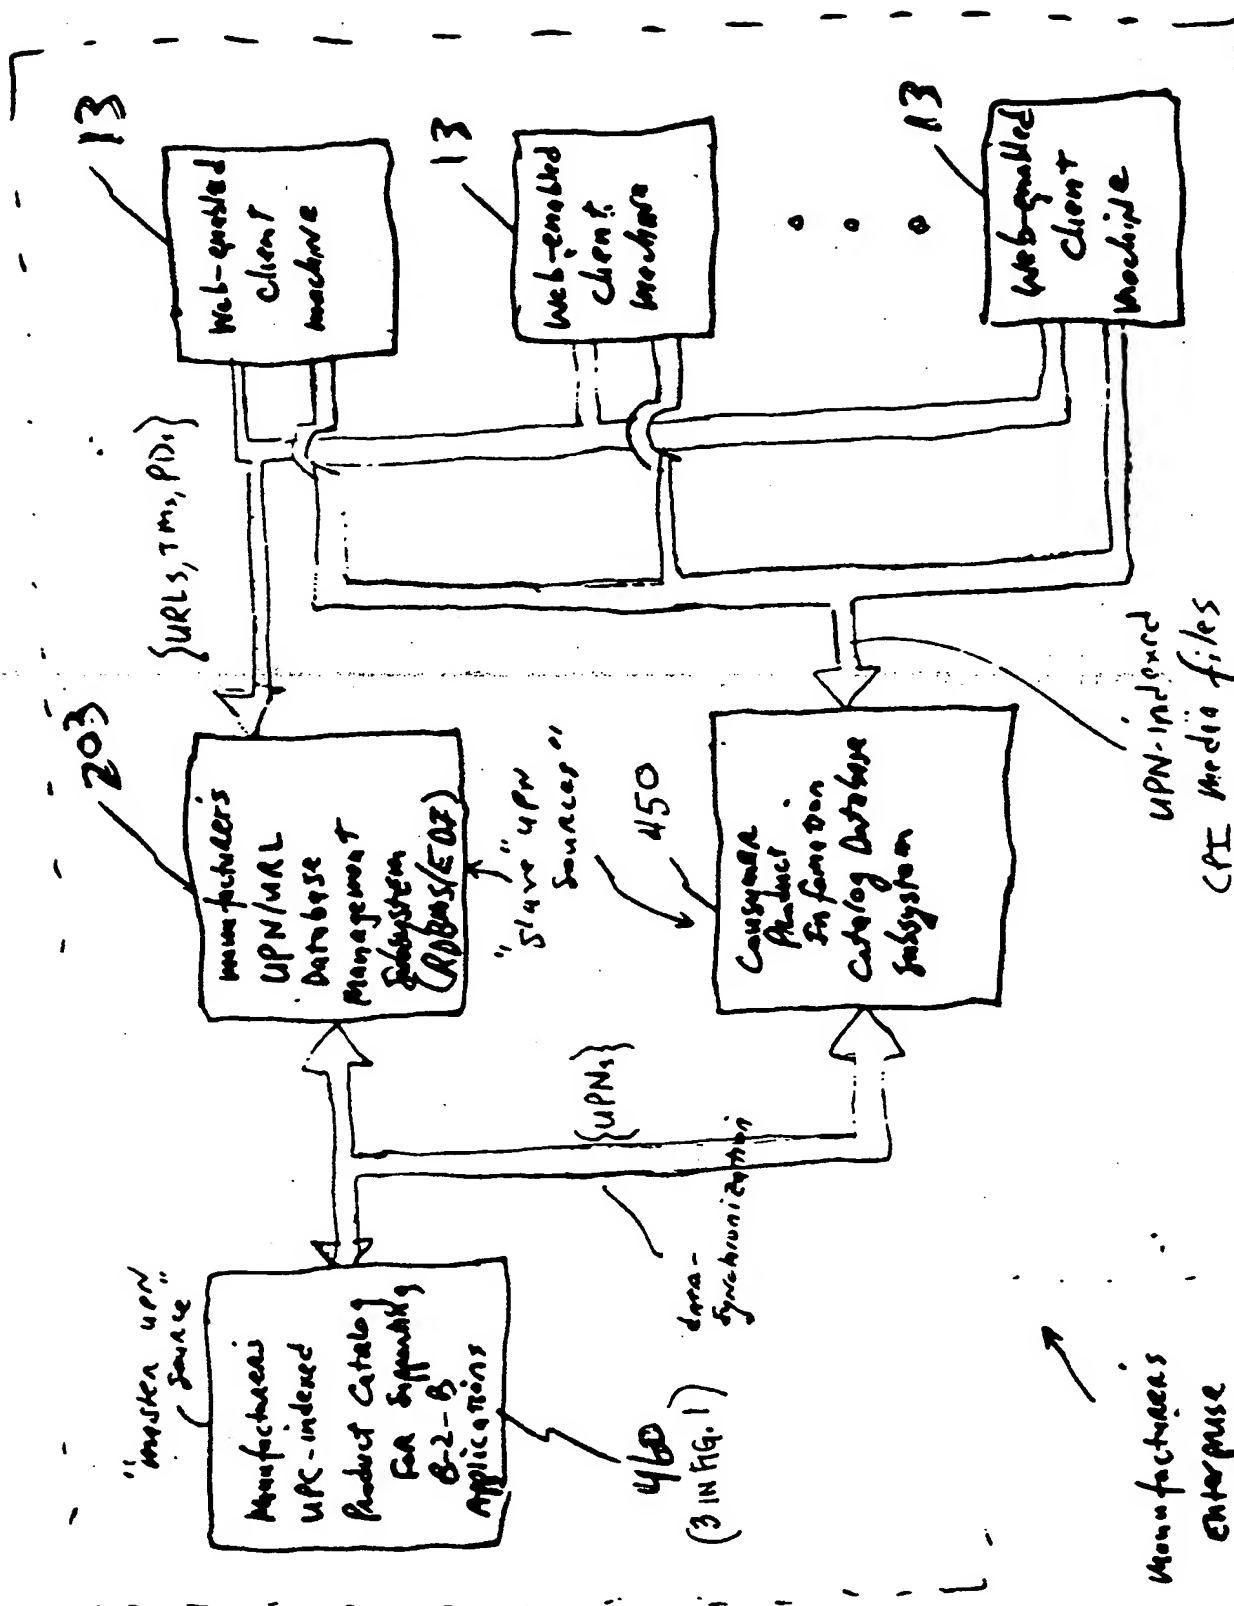 "Master UPN"
Source
Manufacturers
UPC-indexed
Product Catalog
For Supporting
B-2-B
Applications
460
(3 IN FIG. 1)
{UPNs}
data-
Synchronization
203
Manufacturers
UPN/URL
Database
Management
Subsystem
(RDBMS/EDI)
"Slave" UPN
Sources"
450
Consumer
Product
Information
Catalog Database
Subsystem
{URLs, TMs, PDs}
13
Web-enabled
Client
machine
13
Web-enabled
Client
machine
13
Web-enabled
Client
Machine
UPN-indexed
CPI media files
Manufacturers
Enterprise